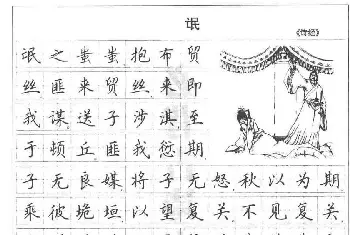 氓
《诗经》
氓之蚩蚩抱布贸
丝匪来贸丝来即
我谋送子涉淇至
于顿丘匪我愆期
子无良媒将子无怒秋以为期
乘彼垝垣以望复关不见复关